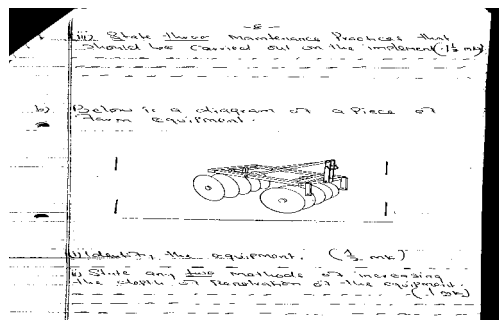 - 5 -
iii) State three maintenance Practices that
should be carried out on the implement (1½ mk)
b) Below is a diagram of a Piece of
farm equipment.
i) Identify the equipment. (½ mk)
ii) State any two methods of increasing
the depth of Penetration of the equipment.
(1 mk)